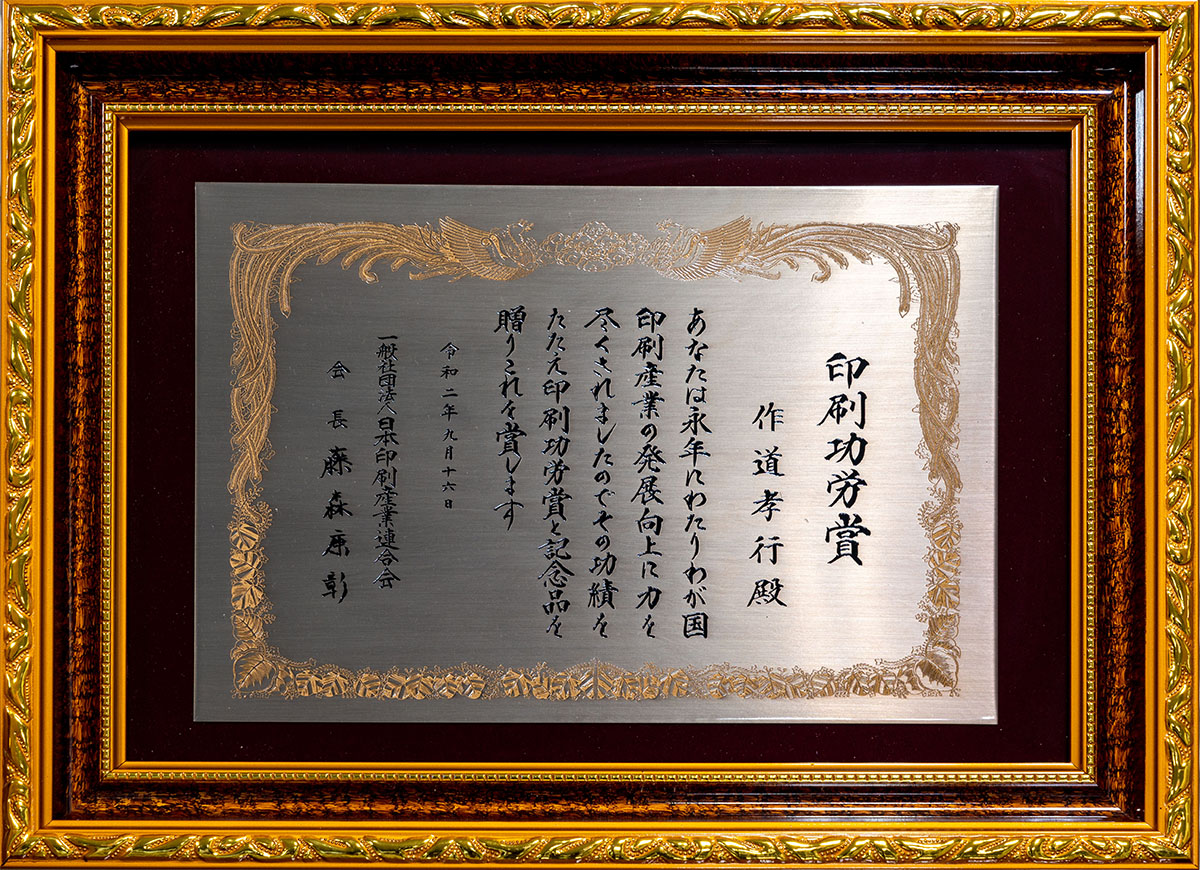 印刷功労賞
作道孝行殿
あなたは永年にわたりわが国
印刷産業の発展向上に力を
尽くされましたのでその功績を
たたえ印刷功労賞と記念品を
贈りこれを賞します
令和二年九月十六日
一般社団法人日本印刷産業連合会
会長藤森康彰